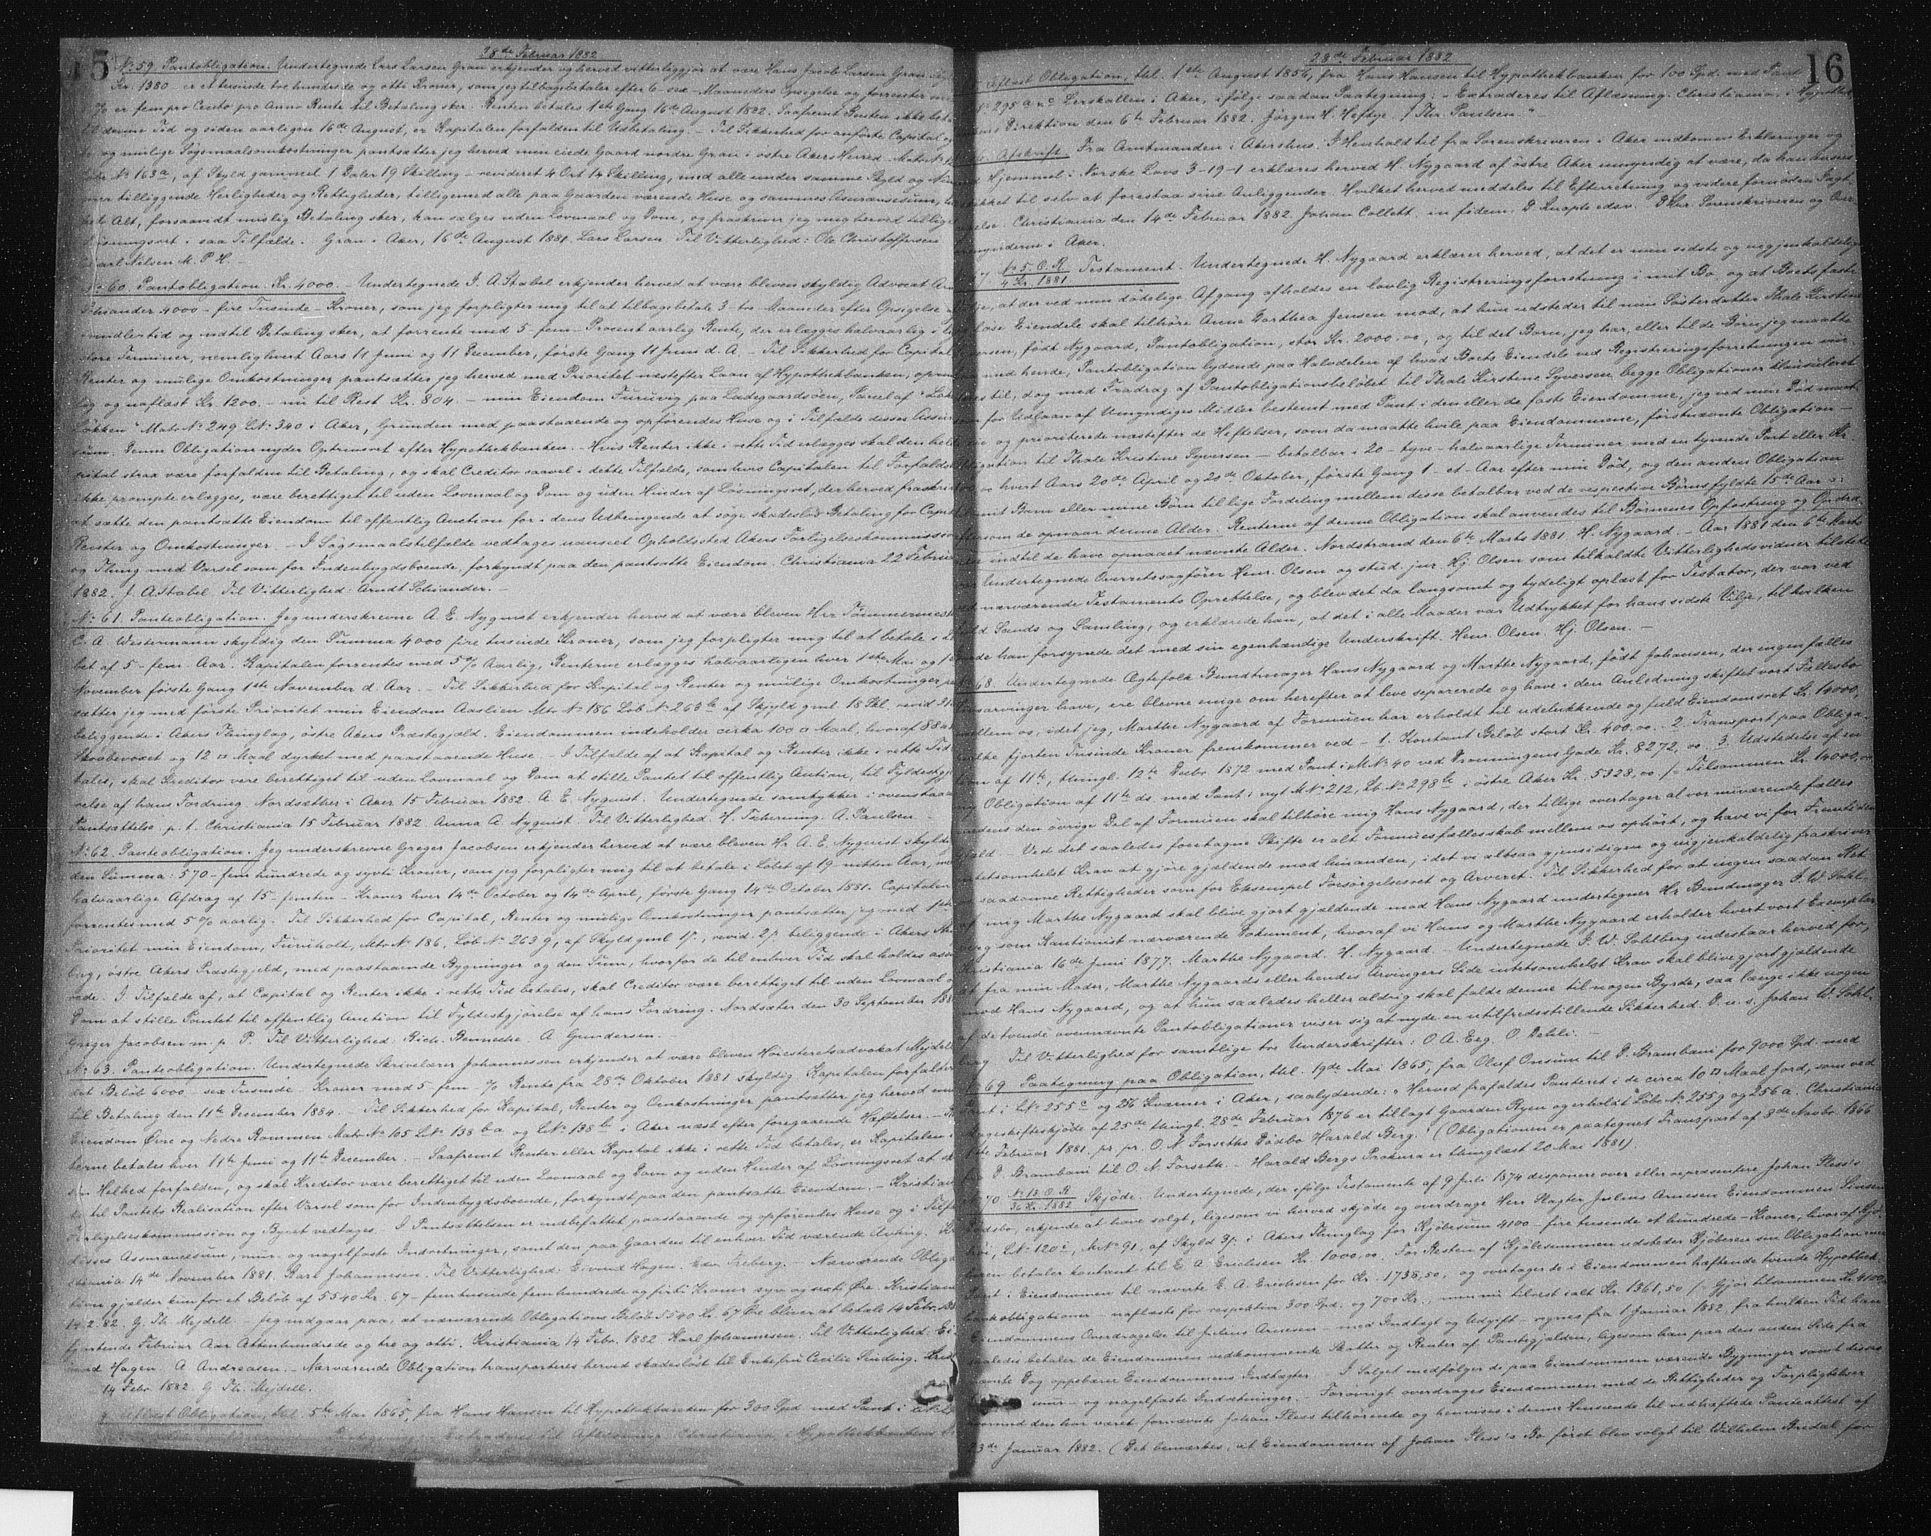 15
28de Februar 1882
No 59. Pantobligation. Undertegnede Lars Larsen Gran erkjender og herved vitterliggjør at være Hans Jacob Larsen Gran
Kr. 1380 er et tusinde tre hundrede og otte Kroner, som jeg tilbagebetaler efter 6 sex Maaneders Opsigelse og forrenter
% er fem pro Cento pro Anno Rente til Betaling sker. Renten betales 1ste Gang 16de August 1882. Saafremt Renten ikke
til denne Tid og siden aarligen 16de August, er Kapitalen forfalden til Udbetaling. - Til Sikkerhed for anførte Capital
og mulige Søgsmaalsomkostninger pantsætter jeg herved min eiede Gaard nordre Gran i østre Akers Herred. Matr. No
Løbe No 163a, af Skyld gammel 1 Daler 19 Skilling - revideret 4 Ort 14 Skilling, med alle under samme Skyld og
tilliggende Herligheder og Rettigheder, tilligemed alle paa Gaarden værende Huse og sammes Assurancesum,
Alt, forsaavidt mislig Betaling sker, kan sælges uden Lovmaal og Dom, og fraskriver jeg mig herved tillige
Løsningsret i saa Tilfælde. Gran i Aker, 16de August 1881. Lars Larsen. Til Vitterlighed: Ole Christoffersen
Carl Nilsen M. P. H. -
No 60. Pantobligation. Kr. 4000. - Undertegnede J. A. Stabel erkjender herved at være bleven skyldig Advocat
Schiander 4000 - fire Tusinde - Kroner, som jeg forpligter mig til at tilbagebetale 3 - tre Maaneder efter Opsigelse
imidlertid og indtil Betaling sker, at forrente med 5 - fem - Procent aarlig Rente, der erlægges halvaarlig i
store Terminer, nemlig hvert Aars 11 Juni og 11 December, første Gang 11 Juni d. A. - Til Sikkerhed for Capital
Renter og mulige Omkostninger pantsætter jeg herved med Prioritet næstefter Laan af Hypothekbanken,
og naflæst Kr. 1200. - nu til Rest Kr. 804. - min Eiendom Furuvig paa Ladegaardsøen, Parcel af
Løkken" Matr. No 249 L. No 340 i Aker, Grunden med paastaaende og opførendes Huse og i Tilfælde disses
sum. Denne Obligation nyder Optrinsret efter Hypothekbanken. - Hvis Renter ikke i rette Tid erlægges skal den hele
Capital strax være forfalden til Betaling, og skal Creditor saavel i dette Tilfælde, som hvis Capitalen til Forfald
ikke prompte erlægges, være berettiget til uden Lovmaal og Dom og uden Hinder af Løsningsret, der herved fraskrives
at sætte den pantsatte Eiendom til offentlig Auction for i dens Udbringende at søge skadesløs Betaling for Capital
Renter og Omkostninger. - I Søgsmaalstilfælde vedtages uanseet Opholdsted Akers Forligelseskommission
og Thing med Varsel som for Indenbygdsboende, forkyndt paa den pantsatte Eiendom. Christiania 22 Februar
1882. J. A. Stabel. Til Vitterlighed: Arndt Schiander. -
No 61. Panteobligation. Jeg underskrevne A. E. Nyquist erkjender herved at være bleven Herr Tømmermester
C. A. Westermann skyldig den Summa 4000 fire tusinde Kroner, som jeg forpligter mig til at betale i
bet af 5 - fem - Aar. Kapitalen forrentes med 5% Aarlig, Renterne erlægges halvaarligen hver 1ste Mai og 1
November første Gang 1ste November d. Aar. - Til Sikkerhed for Kapital og Renter og mulige Omkostninger
sætter jeg med første Prioritet min Eiendom Aaslien Mtr. No 186 Løb. No 263b af Skyld gml. 18 Skl.
beliggende i Akers Thinglag, østre Akers Præstegjeld. Eiendommen indeholder cirka 100 Maal, hvoraf 88
Skovbevoxet og 12 Maal dyrket med paastaaende Huse. - I Tilfælde af at Kapital og Renter, ikke i rette Tid
tales, skal Kreditor være berettiget til uden Lovmaal og Dom at stille Pantet til offentlig Auction, til Fyldestgjø-
relse af hans Fordring. Nordsæther i Aker 15 Februar 1882. A. E. Nyquist. Undertegnede samtykker i ovenstaaende
Pantsættelse p. t. Christiania 15 Februar 1882 Anna A. Nyquist. Til Vitterlighed: H. Schirning. A. Paulsen. -
No 62. Panteobligation. Jeg underskrevne Greger Jacobsen erkjender herved at være bleven Hr. A. E. Nyquist skyldig
den Summa: 570 - fem hundrede og sytti Kroner, som jeg forpligter mig til at betale i Løbet af 19 - nitten Aar,
halvaarlige Afdrag af 15 - femten - Kroner hver 14de October og 14de April, første Gang 14de October 1881. Capitalen
forrentes med 5% aarlig. Til Sikkerhed for Capital, Renter og mulige Omkostninger pantsætter jeg med
Prioritet min Eiendom, Furuhold, Mtr. No 186, Løb. No 263g, af Skyld gml. 1/, revid. 2/ beliggende i Akers
lag, østre Akers Præstegjeld, med paastaaende Bygninger og den Sum, hvorfor de til enhver Tid skal holdes
rede. I Tilfælde af, at Capital og Renter ikke i rette Tid betales, skal Creditor være berettiget til uden Lovmaal
Dom at stille Pantet til offentlig Auction til Fyldestgjørelse af hans Fordring. Nordsæter den 30 September
Greger Jacobsen m. p. P. Til Vitterlighed: Rich. Benneche. A. Gundersen.
No 63. Panteobligation. Undertegnede Skrivelærer Johannessen erkjender at være bleven Høiesteretsadvokat Mejdell
det Beløb 6000 - sex Tusinde - Kroner med 5 - fem - % Rente fra 28de Oktober 1881 skyldig. Kapitalen forfalder
til Betaling den 11te December 1884. - Til Sikkerhed for Kapital, Renter og Omkostninger pantsætter jeg herved
Eiendom Øvre og Nedre Rommen Matr. No 105 L. No 138b a og L. No 138b i Aker næst efter foregaaende Heftelser. -
terne betales hver 11te Juni og 11te December. - Saafremt Renter eller Kapital ikke i rette Tid betales, er Kapitalen i
sin Helhed forfalden, og skal Kreditor være berettiget til uden Lovmaal og Dom og uden Hinder af Løsningsret at
til Pantets Realisation efter Varsel som for Indenbygdsboende, forkyndt paa den pantsatte Eiendom. - Kristiania
Forligelseskommission og Byret vedtages. I Pantsættelsen er indbefattet paastaaende og opførendes Huse og i
disses Assurancesum, mur- og nagelfaste Indretninger, samt den paa Gaarden til enhver Tid værende Avling.
stiania 14de November 1881. Karl Johannessen. Til Vitterlighed: Eivind Hagen. Edv. Freberg. - Nærværende
tion gjælder kun for et Beløb af 5540 Kr. 67 - femtusende femhundrede og firti Kroner syv og sexti Øre. Kristiania
14-2-82. G. Th. Mejdell. - Jeg indgaar paa, at nærværende Obligations Beløb 5540 Kr. 67 Øre bliver at betale 14 Febr.
fjortende Februar Aar Attenhundrede og tre og otti. Kristiania 14 Febr. 1882 Karl Johannessen. Til Vitterlighed:
vind Hagen. A. Andreasen. - Nærværende Obligation transporteres herved skadesløst til Enkefru Cecilie Sinding.
14 Febr. 1882. G. Th. Mejdell.
Aflæst Obligation, thl. 5te Mai 1865, fra Hans Hansen til Hypothekbanken for 300 Spd. med Pant i
16
28de Februar 1882
Aflæst Obligation, thl. 1ste August 1856, fra Hans Hansen til Hypothekbanken for 100 Spd. med Pant
No 295 a No Lerskallen i Aker, ifølge saadan Paategning: "Extraderes til Aflæsning. Christiania,
Direktion den 6te Februar 1882. Jørgen H. Heftye. / Thr. Paulsen." -
Afskrift. Fra Amtmanden i Akershus. I Henhold til fra Sorenskriveren i Aker indkomne Erklæringer og
Hjemmel i Norske Lovs 3-19-1 erklæres herved H. Nygaard af østre Aker umyndig at være, da han ansees
til selv at forestaa sine Anliggender. Hvilket herved meddeles til Efterretning og videre fornøden
Christiania den 14de Februar 1882. Johan Collett. in fidem: D. Knapte edsv. D'Hrr. Sorenskriveren og
myndierne i Aker.
No 5 O. R. Testament. Undertegnede H. Nygaard erklærer herved, at det er min sidste og uigjenkaldelige
4 Kr. 1881
at der ved min dødelige Afgang afholdes en lovlig Registreringsforretning i mit Bo, og at Boets faste
løse Eiendele skal tilhøre Anne Dorthea Jensen mod, at hun udsteder til min Søsterdatter Thale Kirstine
Syversen, født Nygaard, Pantobligation, stor Kr. 2000.00, og til det Barn, jeg har, eller til de Børn, jeg maatte
med hende, Pantobligation lydende paa Halvdelen af hvad Boets Eiendele ved Registreringsforretningen
til, dog med Fradrag af Pantobligationsbeløbet til Thale Kirstine Syversen, begge Obligationer klausuleret
som for Udlaan af Umyndiges Midler bestemt med Pant i den eller de faste Eiendomme, jeg ved min Død maatte
og prioriterede næstefter de Heftelser, som da maatte hvile paa Eiendommene, førstnævnte Obligation -
Obligation til Thale Kirstine Syversen - betalbar i 20 - tyve - halvaarlige Terminer med en tyvende Part eller Kr.
hvert Aars 20de April og 20de Oktober, første Gang 1 - et - Aar efter min Død, og den anden Obligation
mit Barn eller mine Børn til lige Fordeling mellem disse betalbar ved de respective Børns fyldte 15de Aar
eftersom de opnaar denne Alder. Renterne af denne Obligation skal anvendes til Børnenes Opfostring og
indtil de have opnaaet nævnte Alder. Nordstrand den 6te Marts 1881. H. Nygaard. - Aar 1881 den 6te Marts
Undertegnede Overretssagfører Henr. Olsen og stud. jur. Hj. Olsen som tilkaldte Vitterlighedsvidner tilstede
nærværende Testaments Oprettelse, og blev det da langsomt og tydeligt oplæst for Testator, der var ved
Sands og Samling, og erklærede han, at det i alle Maader var Udtrykket for hans sidste Vilje, til hvilken
han forsynede det med sin egenhændige Underskrift. Henr. Olsen. Hj. Olsen. -
68. Undertegnede Ægtefolk Bundtmager Hans Nygaard og Marthe Nygaard, født Johansen, der ingen fælles
Livsarvinger have, ere blevne enige om herefter at leve separerede og have i den Anledning skiftet vort Fællesbo
mellem os, idet jeg, Marthe Nygaard af Formuen har erholdt til udelukkende og fuld Eiendomsret Kr. 14000,
fjorten Tusinde Kroner fremkommer ved - 1. Kontant Beløb stort Kr. 400,00. - 2. Transport paa Obliga-
tion af 11te, thingl. 12te Decbr. 1872 med Pant i M. No 40 ved Dronningens Gade Kr. 8272,00. 3. Udstedelse af en
ny Obligation af 11te ds. med Pant i nyt M. No 212, Lb. No 298b i østre Aker Kr. 5328,00 /- Tilsammen Kr. 14000,00
medens den øvrige Del af Formuen skal tilhøre mig Hans Nygaard, der tillige overtager al vor nuværende fælles
Gjæld. - Ved det saaledes foretagne Skifte er alt Formuesfællesskab mellem os ophørt, og have vi for Fremtiden
intetsomhelst Krav at gjøre gjældende mod hinanden, idet vi altsaa gjensidigen og uigjenkaldelig fraskriver
saadanne Rettigheder som for Eksempel Forsørgelsesret og Arveret. Til Sikkerhed for at ingen saadan Ret
af mig Marthe Nygaard skal blive gjort gjældende mod Hans Nygaard undertegner Hr. Bundtmager J. W. Sohl-
berg som Kautionist nærværende Dokument, hvoraf vi Hans og Marthe Nygaard erholder hvert vort Exemplar
Kristiania 16de Juni 1877. Marthe Nygaard. H. Nygaard. - Undertegnede J. W. Sohlberg indestaar herved for,
at fra min Moder, Marthe Nygaards eller hendes Arvingers Side intetsomhelst Krav skal blive gjort gjældende
mod Hans Nygaard, og at hun saaledes heller aldrig skal falde denne til nogen Byrde, saa længe ikke nogen
af de tvende ovennævnte Pantobligationer viser sig at nyde en utilfredsstillende Sikkerhed. D. u. s. Johan W. Sohl-
berg. Til Vitterlighed for samtlige tre Underskrifter: O. A. Eeg. O. Dehli. -
69. Paategning paa Obligation, thl. 19de Mai 1865, fra Oluf Onsum til P. Brambani for 9000 Spd. med
Pant i L. No 255c og 256 Kværner i Aker, saalydende: "Herved frafaldes Panteret i de circa 10 Maal Jord, som ved
Mageskifteskjøde af 25de thingl. 28de Februar 1876 er tillagt Gaarden Ryen og erholdt Løbe No 255g og 256a. Christiania
1ste Februar 1881. pr. pr. O. N. Forseths Dødsbo Harald Berg." (Obligationen er paategnet Transport af 8de Novbr. 1866
P. Brambani til O. N. Forseth. - Harald Bergs Prokura er thinglæst 20 Mai 1881).
70. No 13 O. R. Skjøde. Undertegnede, der ifølge Testamente af 9 Juli 1874 disponere over eller repræsentere Johan Pless's
36 Kr. 1882
Dødsbo, erkjende at have solgt, ligesom vi herved skjøde og overdrage Herr Slagter Julius Arnesen Eiendommen Linsen
L. No 120i, M. No 91, af Skyld 3/ i Akers Thinglag for Kjøbesum 4100 - fire tusende et hundrede - Kroner, hvoraf
beren betaler kontant til E. A. Erichsen Kr. 1000,00. For Resten af Kjøbesummen udsteder Kjøberen sin Obligation med
Pant i Eiendommen til nævnte E. A. Erichsen for Kr. 1738,50, og overtager de i Eiendommen hæftende tvende Hypothek-
bankobligationer naflæste for respektive 300 Spd. og 700 Kr., men nu tilrest ialt Kr. 1361,50 /- Gjør tilsammen Kr. 4100
Eiendommens Overdragelse til Julius Arnesen - med Indtægt og Udgift - regnes fra 1 Januar 1882, fra hvilken Tid han
saaledes betaler de Eiendommen vedkommende Skatter og Renter af Pantegjælden, ligesom han paa den anden Side fra
nævnte Dag oppebærer Eiendommens Indtægter. I Salget medfølger de paa Eiendommen værende Bygninger samt disses
mur- og nagelfaste Indretninger. - Forøvrigt overdrages Eiendommen med de Rettigheder og Forpligtelser
hvormed den har været fornævnte Johan Pless tilhørende og henvises i denne Henseende til vedhæftede Panteattest af
23de Januar 1882. (Det bemærkes, at Eiendommen af Johan Pless's Bo først blev solgt til Wilhelm Bredal for